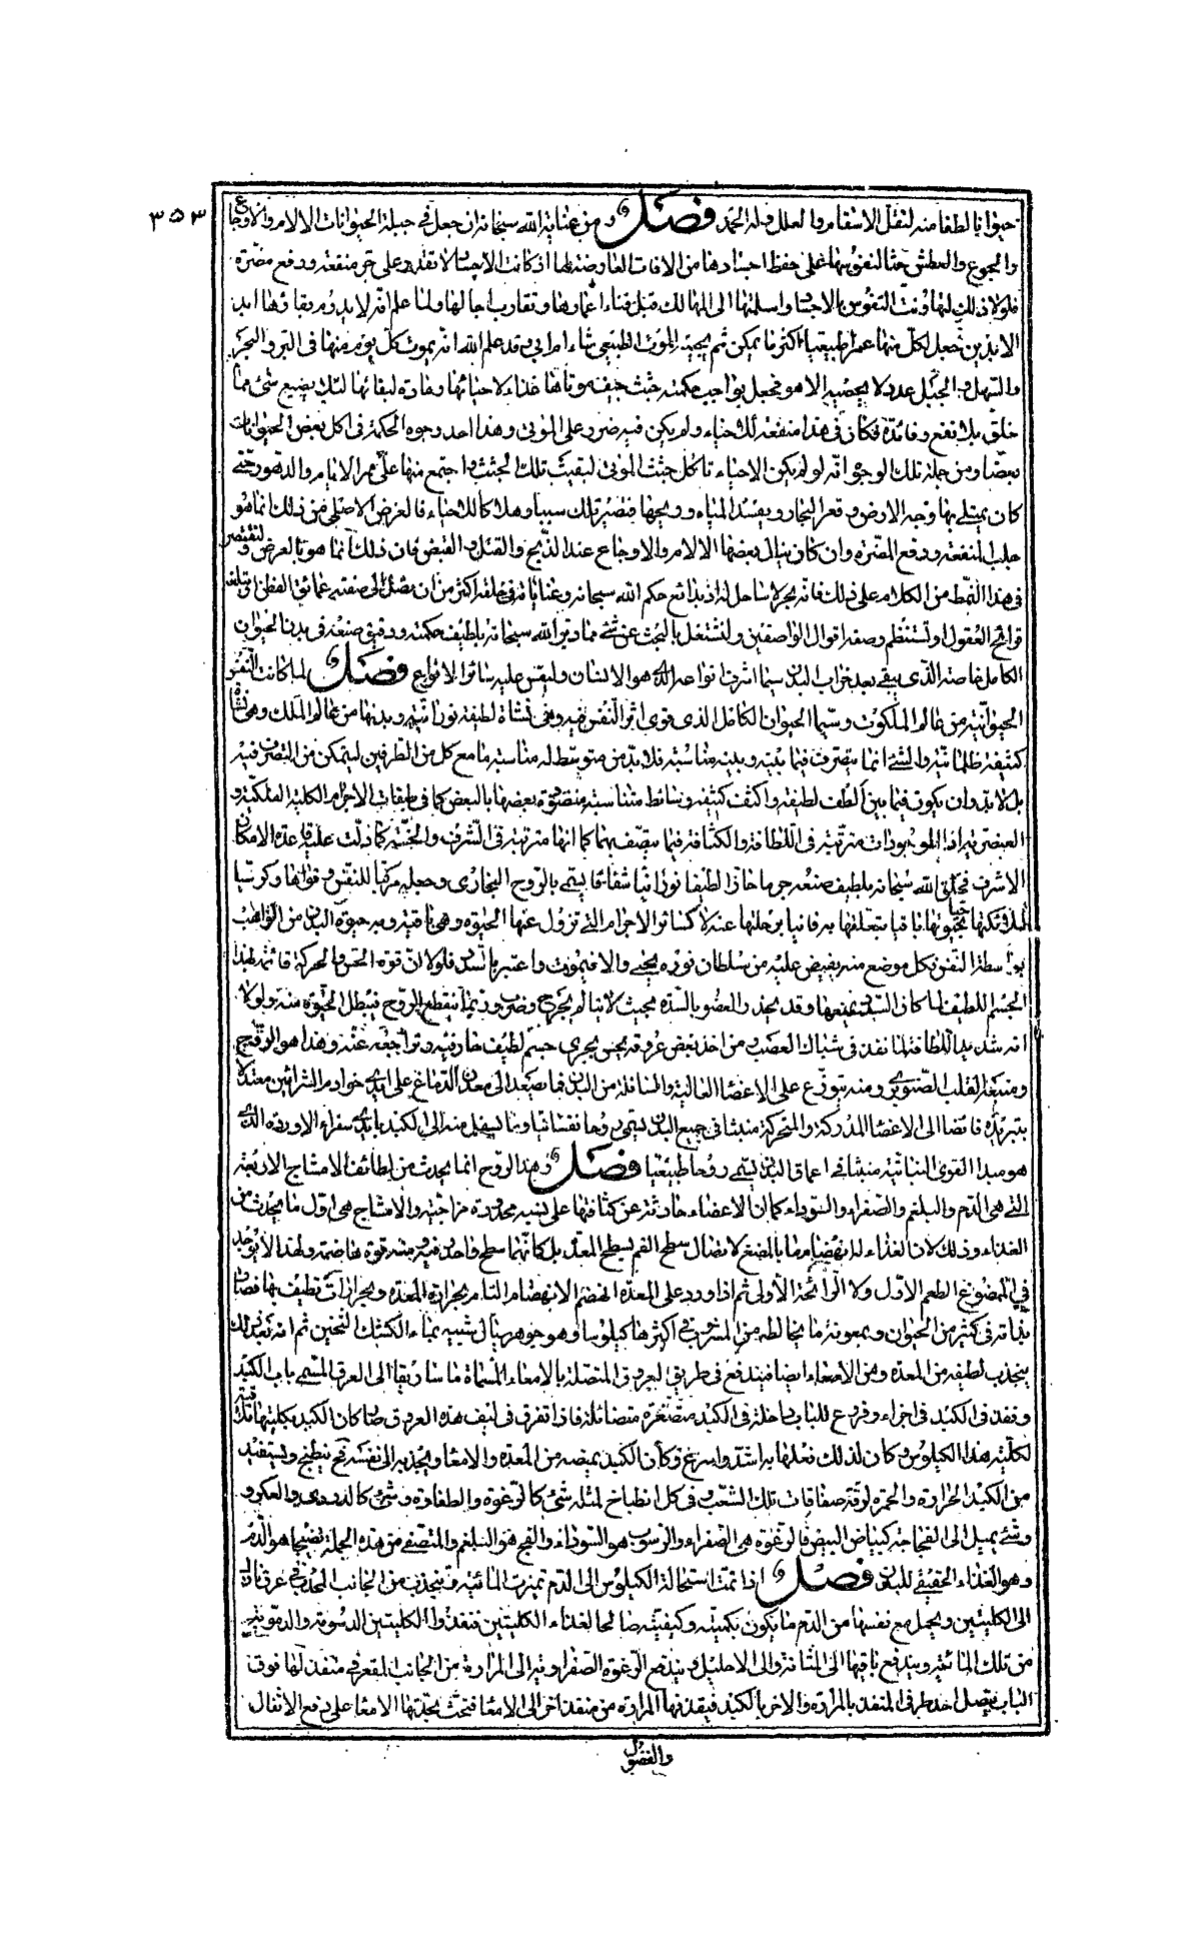 ٣٥٣
حيوانا لطفا منه لنقل الاسقام والعلل فله الحمد فصل و من عناية الله سبحانه ان جعل في جبلة الحيوانات الالام والاوجاع
والجوع والعطش حثا لنفوسها على حفظ اجسادها من الافات العارضة لها اذ كانت الاجساد لا تقدر على جر منفعة ودفع مضرة
فلولا ذلك لتهاونت النفوس بالاجساد واسلمتها الى المهالك قبل فناء اعمارها وتقارب اجالها ولما علم انه لا يدوم بقاؤها ابد
الابدين جعل لكل منها عمرا طبيعيا اكثر ما يمكن ثم يجيئه الموت الطبيعي شاء ام ابى وقد علم الله انه يموت كل يوم منها في البر والبحر
والسهل والجبل عدد لا يحصيه الا هو فجعل بواجب حكمته جثث جيف موتاها غذاء لاحيائها ومادة لبقائها لئلا يضيع شئ مما
خلق بلا نفع وفائدة فكان في هذا منفعة للاحياء ولم يكن فيه ضرر على الموتى وهذا احد وجوه الحكمة في اكل بعض الحيوانات
بعضا ومن جملة تلك الوجوه انه لو لم يكن الاحياء تاكل جثث الموتى لبقيت تلك الجثث واجتمع منها على ممر الايام والدهور حتى
كان يمتلى بها وجه الارض وقعر البحار ويفسد المياه وريحها فتصير تلك سببا وهلاكا للاحياء فالغرض الاصلى من ذلك انما هو
جلب المنفعة ودفع المضرة وان كان ينال بعضها الالام والاوجاع عند الذبح والقتل والقبض فان ذلك انما هو بالعرض ولنقتصر
في هذا النمط من الكلام على ذلك فانه بحر لا ساحل له اذ بدائع حكم الله سبحانه وعناياته في خلقه اكثر من ان يصل الى صفته عمائق الفطن او تبلغه
قرائح العقول او تستنظم وصفه اقوال الواصفين ولنشتغل بالبحث عن شئ مما دبر الله سبحانه بلطيف حكمته ودقيق صنعه في بدن الحيوان
الكامل خاصة الذى يبقى بعد خراب البدن سيما اشرف انواعه الذى هو الانسان وليقس عليه سائر الانواع فصل لما كانت النفس
الحيوانية من عالم الملكوت وسيما الحيوان الكامل الذى قوى اثر النفس فيه وهى نشاة لطيفة نورانية وبدنها من عالم الملك وهى نشاة
كثيفة ظلمانية والشئ انما يتصرف فيما بينه وبينه مناسبة فلا بد من متوسط له مناسبة ما مع كل من الطرفين ليتمكن من التصرف فيه
بل لا بد وان يكون فيما بين الطف لطيفه واكثف كثيفه وسائط متناسبة متصلة بعضها بالبعض كما في طبقات الاجرام الكلية الفلكية و
العنصرية اذ الموجودات مترتبة في اللطافة والكثافة فيما يتصف بهما كما انها مترتبة في الشرف والخسة كما دلت عليه قاعدة الامكان
الاشرف فخلق الله سبحانه بلطيف صنعه جرما حارا لطيفا نورانيا شفافا يسمى بالروح البخارى وجعله مركبا للنفس وقواها وكرسيا
لملائكتها حيا بحيوتها باقيا بتعلقها به فانيا برحلتها عنه لا كسائر الاجرام التى تزول عنها الحيوة وهى باقية وبه حيوة البدن من الواهب
بواسطة النفس فكل موضع منه يفيض عليه من سلطان نوره يحيى والا فيموت واعتبر بالسدد فلولا ان قوة الحس والحركة قائمة بهذا
الجسم اللطيف لما كان السدد يمنعها وقد يخدر العضو بالسدة بحيث لا يتالم بجرح وضرب وربما ينقطع الروح فيبطل الحيوة منه ولولا
انه شديد اللطافة لما نفذ في شباك العصب ومن اخذ بعض عروقه يحس بجرى جسم لطيف حار فيه وتراجعه عنه وهذا هو الروح
ومنبعه القلب الصنوبرى ومنه يتوزع على الاعضاء العالية والسافلة من البدن فما يصعد الى معدن الدماغ على ايدى خوادم الشرائين معتدلا
بتبريده فائضا الى الاعضاء المدركة والمتحركة منبثا في جميع البدن يسمى روحا نفسانيا وما يسفل منه الى الكبد بايدى سفراء الاوردة الذى
هو مبدا القوى النباتية منبثا في اعماق البدن يسمى روحا طبيعيا فصل وهذا الروح انما يحدث من لطائف الامشاج الاربعة
التى هى الدم والبلغم والصفراء والسوداء كما ان الاعضاء حادثة عن كثافتها على نسبة محدودة مزاجية والامشاج هى اول ما يحدث من
الغذاء وذلك لان الغذاء له انهضام ما بالمضغ لاتصال سطح الفم بسطح المعدة بل كانهما سطح واحد وفيه منه قوة هاضمة ولهذا لا يوجد
في الممضوغ الطعم الاول ولا الرائحة الاولى ثم اذا ورد على المعدة انهضم الانهضام التام بحرارة المعدة وبحرارة ما تطيف بها فصار
بذاته في كثير من الحيوان وبمعونة ما يخالطه من المشروب في اكثرها كيلوسا وهو جوهر سيال شبيه بماء الكشك الثخين ثم انه بعد ذلك
ينجذب لطيفه من المعدة ومن الامعاء ايضا فيندفع في طريق العروق المتصلة بالامعاء المسماة ماساريقا الى العرق المسمى باب الكبد
ونفذ في الكبد في اجزاء وفروع للباب داخلة في الكبد متصغرة متضائلة فاذا تفرق في ليف هذه العروق صار كان الكبد بكليتها ملاقية
لكلية هذا الكيلوس وكان لذلك فعلها به اشد واسرع وكان الكبد يمصه من المعدة والامعاء ويجذبه الى نفسه فح ينطبخ ويستفيد
من الكبد الحرارة والحمرة لرقة صفاقات تلك الشعب وفي كل انطباخ لمثله شئ كالرغوة والطفاوة وشئ كالدردى والعكر و
شئ يميل الى الفجاجة كبياض البيض فالرغوة هى الصفراء والرسوب هو السوداء والفج هو البلغم والمتصفى من هذه الجملة نضيجا هو الدم
وهو الغذاء الحقيقى للبدن فصل اذا تمت استحالة الكيلوس الى الدم تميزت المائية وتنجذب من الجانب المحدب في عرق نازل
الى الكليتين ويحمل مع نفسها من الدم ما يكون بكميته وكيفيته صالحا لغذاء الكليتين فتغذو الكليتين الدسومة والدموية
من تلك المائية ويندفع باقيها الى المثانة والى الاحليل ويندفع الرغوة الصفراوية الى المرارة من الجانب المقعر في منفذ لها فوق
الباب يتصل احد طرفي المنفذ بالمرارة والاخر بالكبد فيقذفها المرارة من منفذ اخر الى الامعاء فتحث بحدتها الامعاء على دفع الاثفال
والفضول